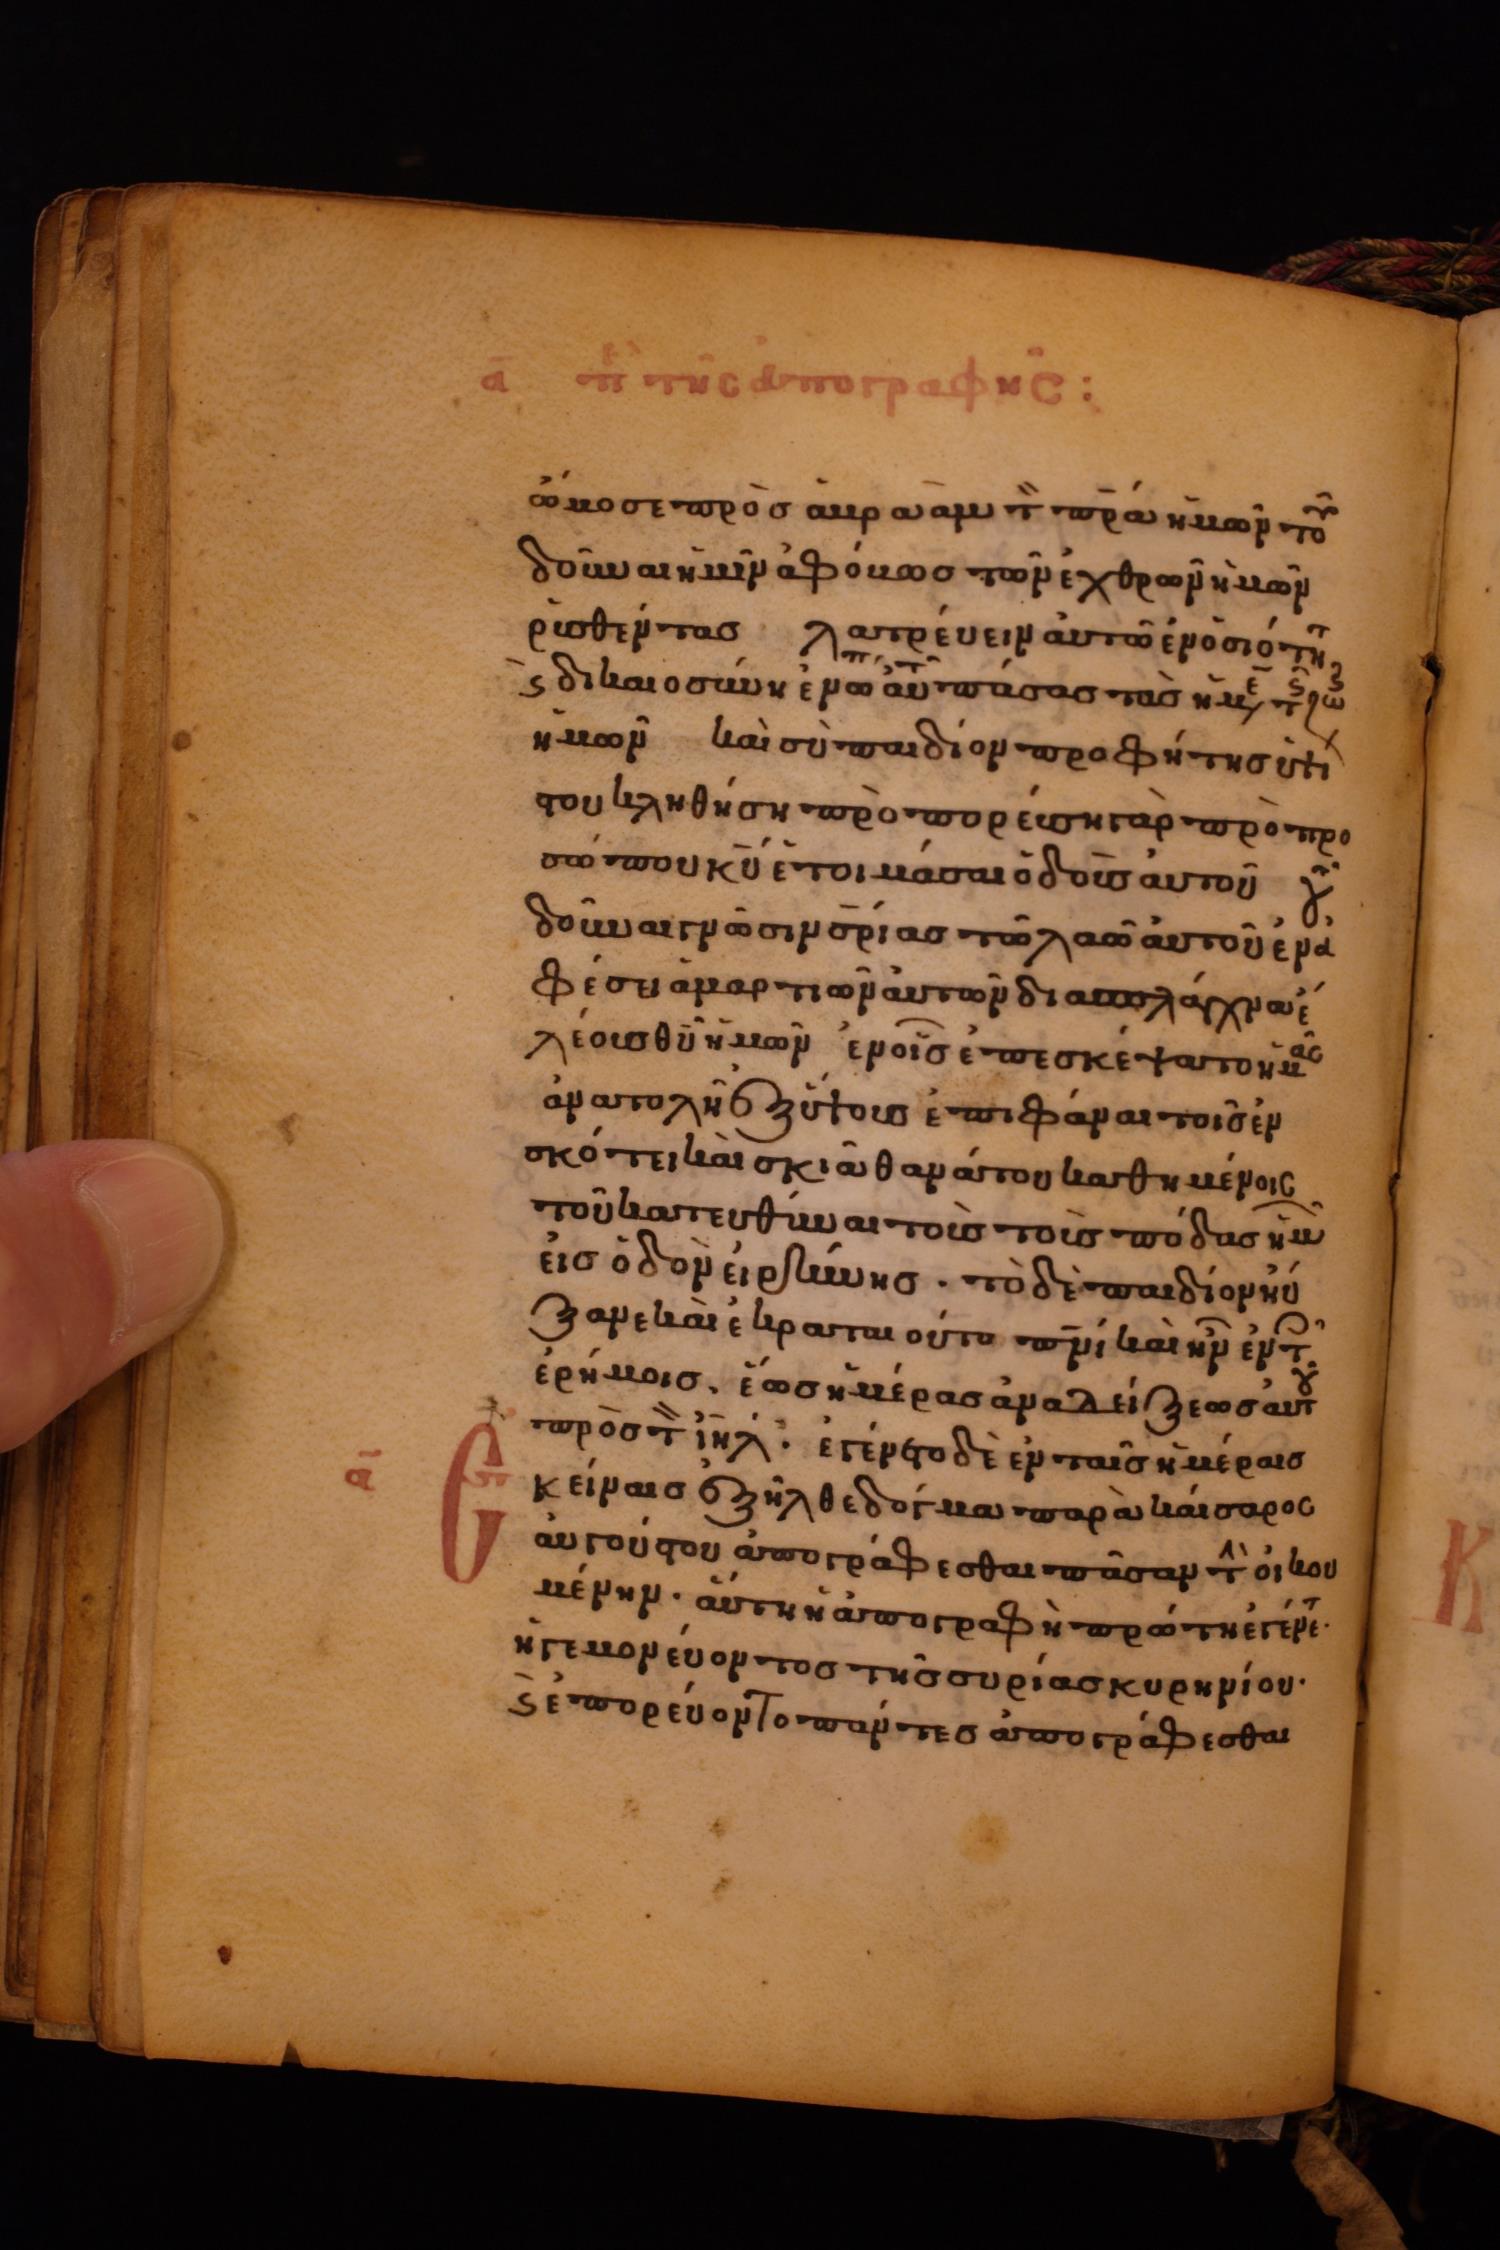 ᾱ πε τῆς ἀπογραφῆς :
ὤμοσε πρὸς ἀβραὰμ τ̀ π̅ρ̅α ἡμῶν τοῦ
δοῦναι ἡμῖν ἀφόβως τῶν ἐχθρῶν ἡμῶν
ρυσθέντας λατρεύειν αὐτῶ ἐν ὁσιότητ
ϛ δικαιοσύνη ἐνώπ αὐτ πάσας τὰς ἡμε τ ζω
ἡμῶν καὶ σὺ παιδίον προφήτης ὑψί
στου κληθήση προπορεύση γὰρ πρὸ προ
σώπου κ̅υ̅ ἑτοιμάσαι ὁδοὺς αὐτοῦ τοῦ
δοῦναι γνῶσιν σ̅ρ̅ίας τῶ λαῶ αὐτοῦ ἐν ἀ
φέσει ἁμαρτιῶν αὐτῶν διὰ σπλάγχνα ἐ
λέους θ̅υ̅ ἡμῶν ἐν οἷς ἐπεσκέψατο ἡμᾶς
ἀνατολὴ ἐξ ὕψους ἐπιφάναι τοῖς ἐν
σκότει καὶ σκιᾶ θανάτου καθημένοις
τοῦ κατευθύναι τοὺς τοὺς πόδας ἡμ
εἰς ὁδὸν εἰρήνης · τὸ δὲ παιδίον ηὔ
ξανε καὶ ἐκραταιοῦτο π̅ν̅ι καὶ ἦν ἐν τ
ἐρήμοις, ἕως ἡμέρας ἀναδείξεως αὐτοῦ
πρὸς τ̀ ἰ̅η̅λ̅ · ἐγένετο δὲ ἐν ταῖς ἡμέραις
ᾱ Ἐκείναις ἐξῆλθε δόγμα παρὰ καίσαρος
αὐγούστου ἀπογράφεσθαι πᾶσαν τὴ οἰκου
μένην · αὕτη ἡ ἀπογραφὴ πρώτη ἐγένε·
ἡγεμονεύοντος τῆς συρίας κυρηνίου·
ϛ ἐπορεύοντο πάντες ἀπογράφεσθαι